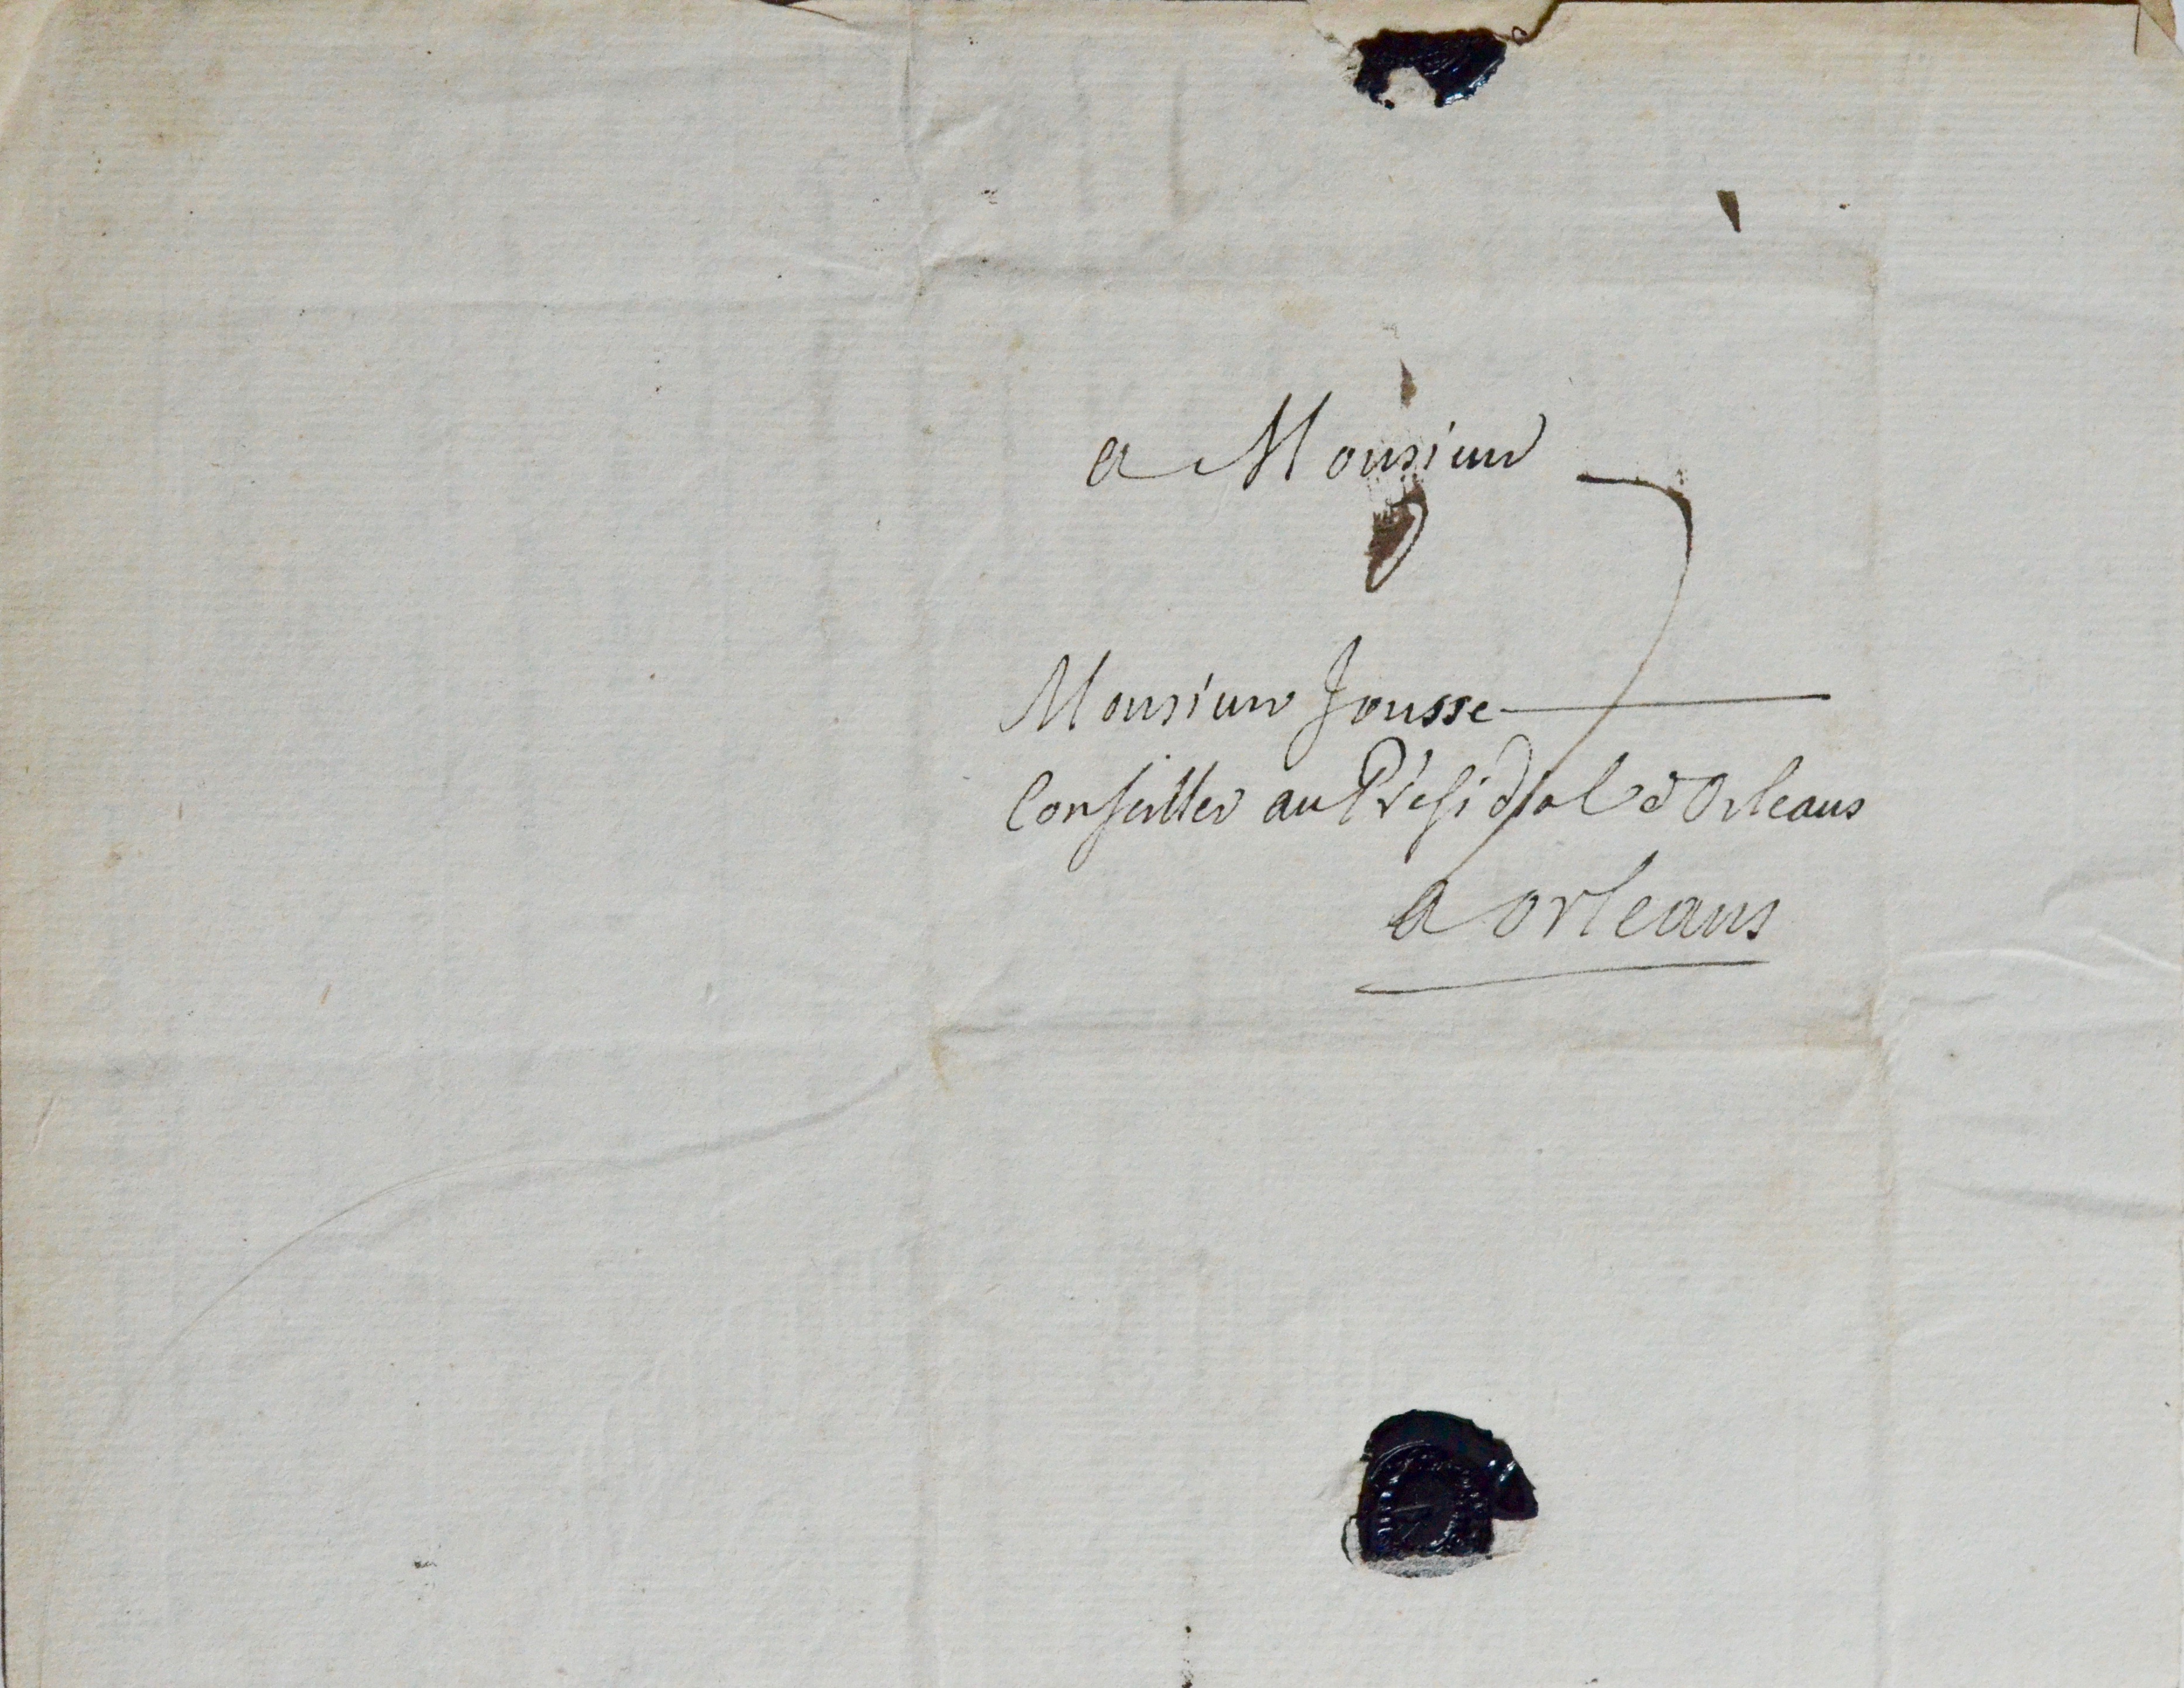 a Monsieur
Monsieur Jousse
Conseiller au Présidial d'Orleans
a orleans